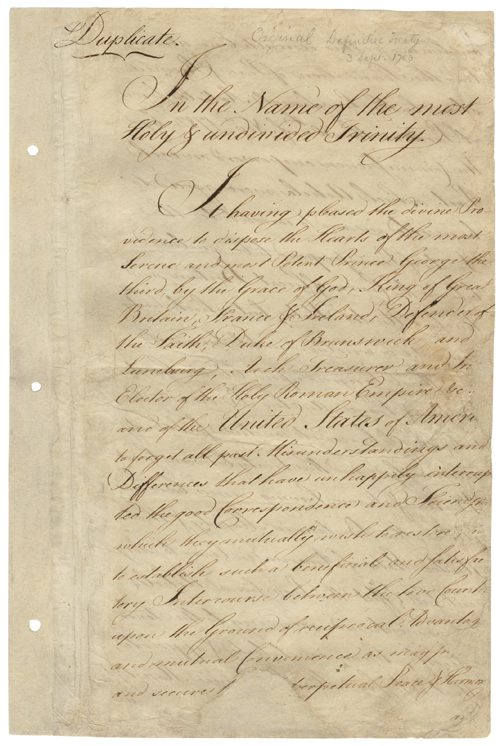 Duplicate.
Original Definitive Treaty
3 Sept. 1783
In the Name of the most
Holy & undivided Trinity.
It having pleased the divine Pro
vidence to dispose the Hearts of the most
Serene and most Potent Prince George the
third, by the Grace of God, King of Great
Britain, France & Ireland, Defender of
the Faith, Duke of Brunswick and
Lunebourg, Arch Treasurer and
Elector of the Holy Roman Empire &c.
and of the United States of Ameri
to forget all past Misunderstandings and
Differences that have unhappily interrup
ted the good Correspondence and Friendsh
which they mutually wish to restore;
to establish such a beneficial and satisfac
tory Intercourse between the two Count
upon the Ground of reciprocal Advantag
and mutual Convenience as may
and secure perpetual Peace & Harmon